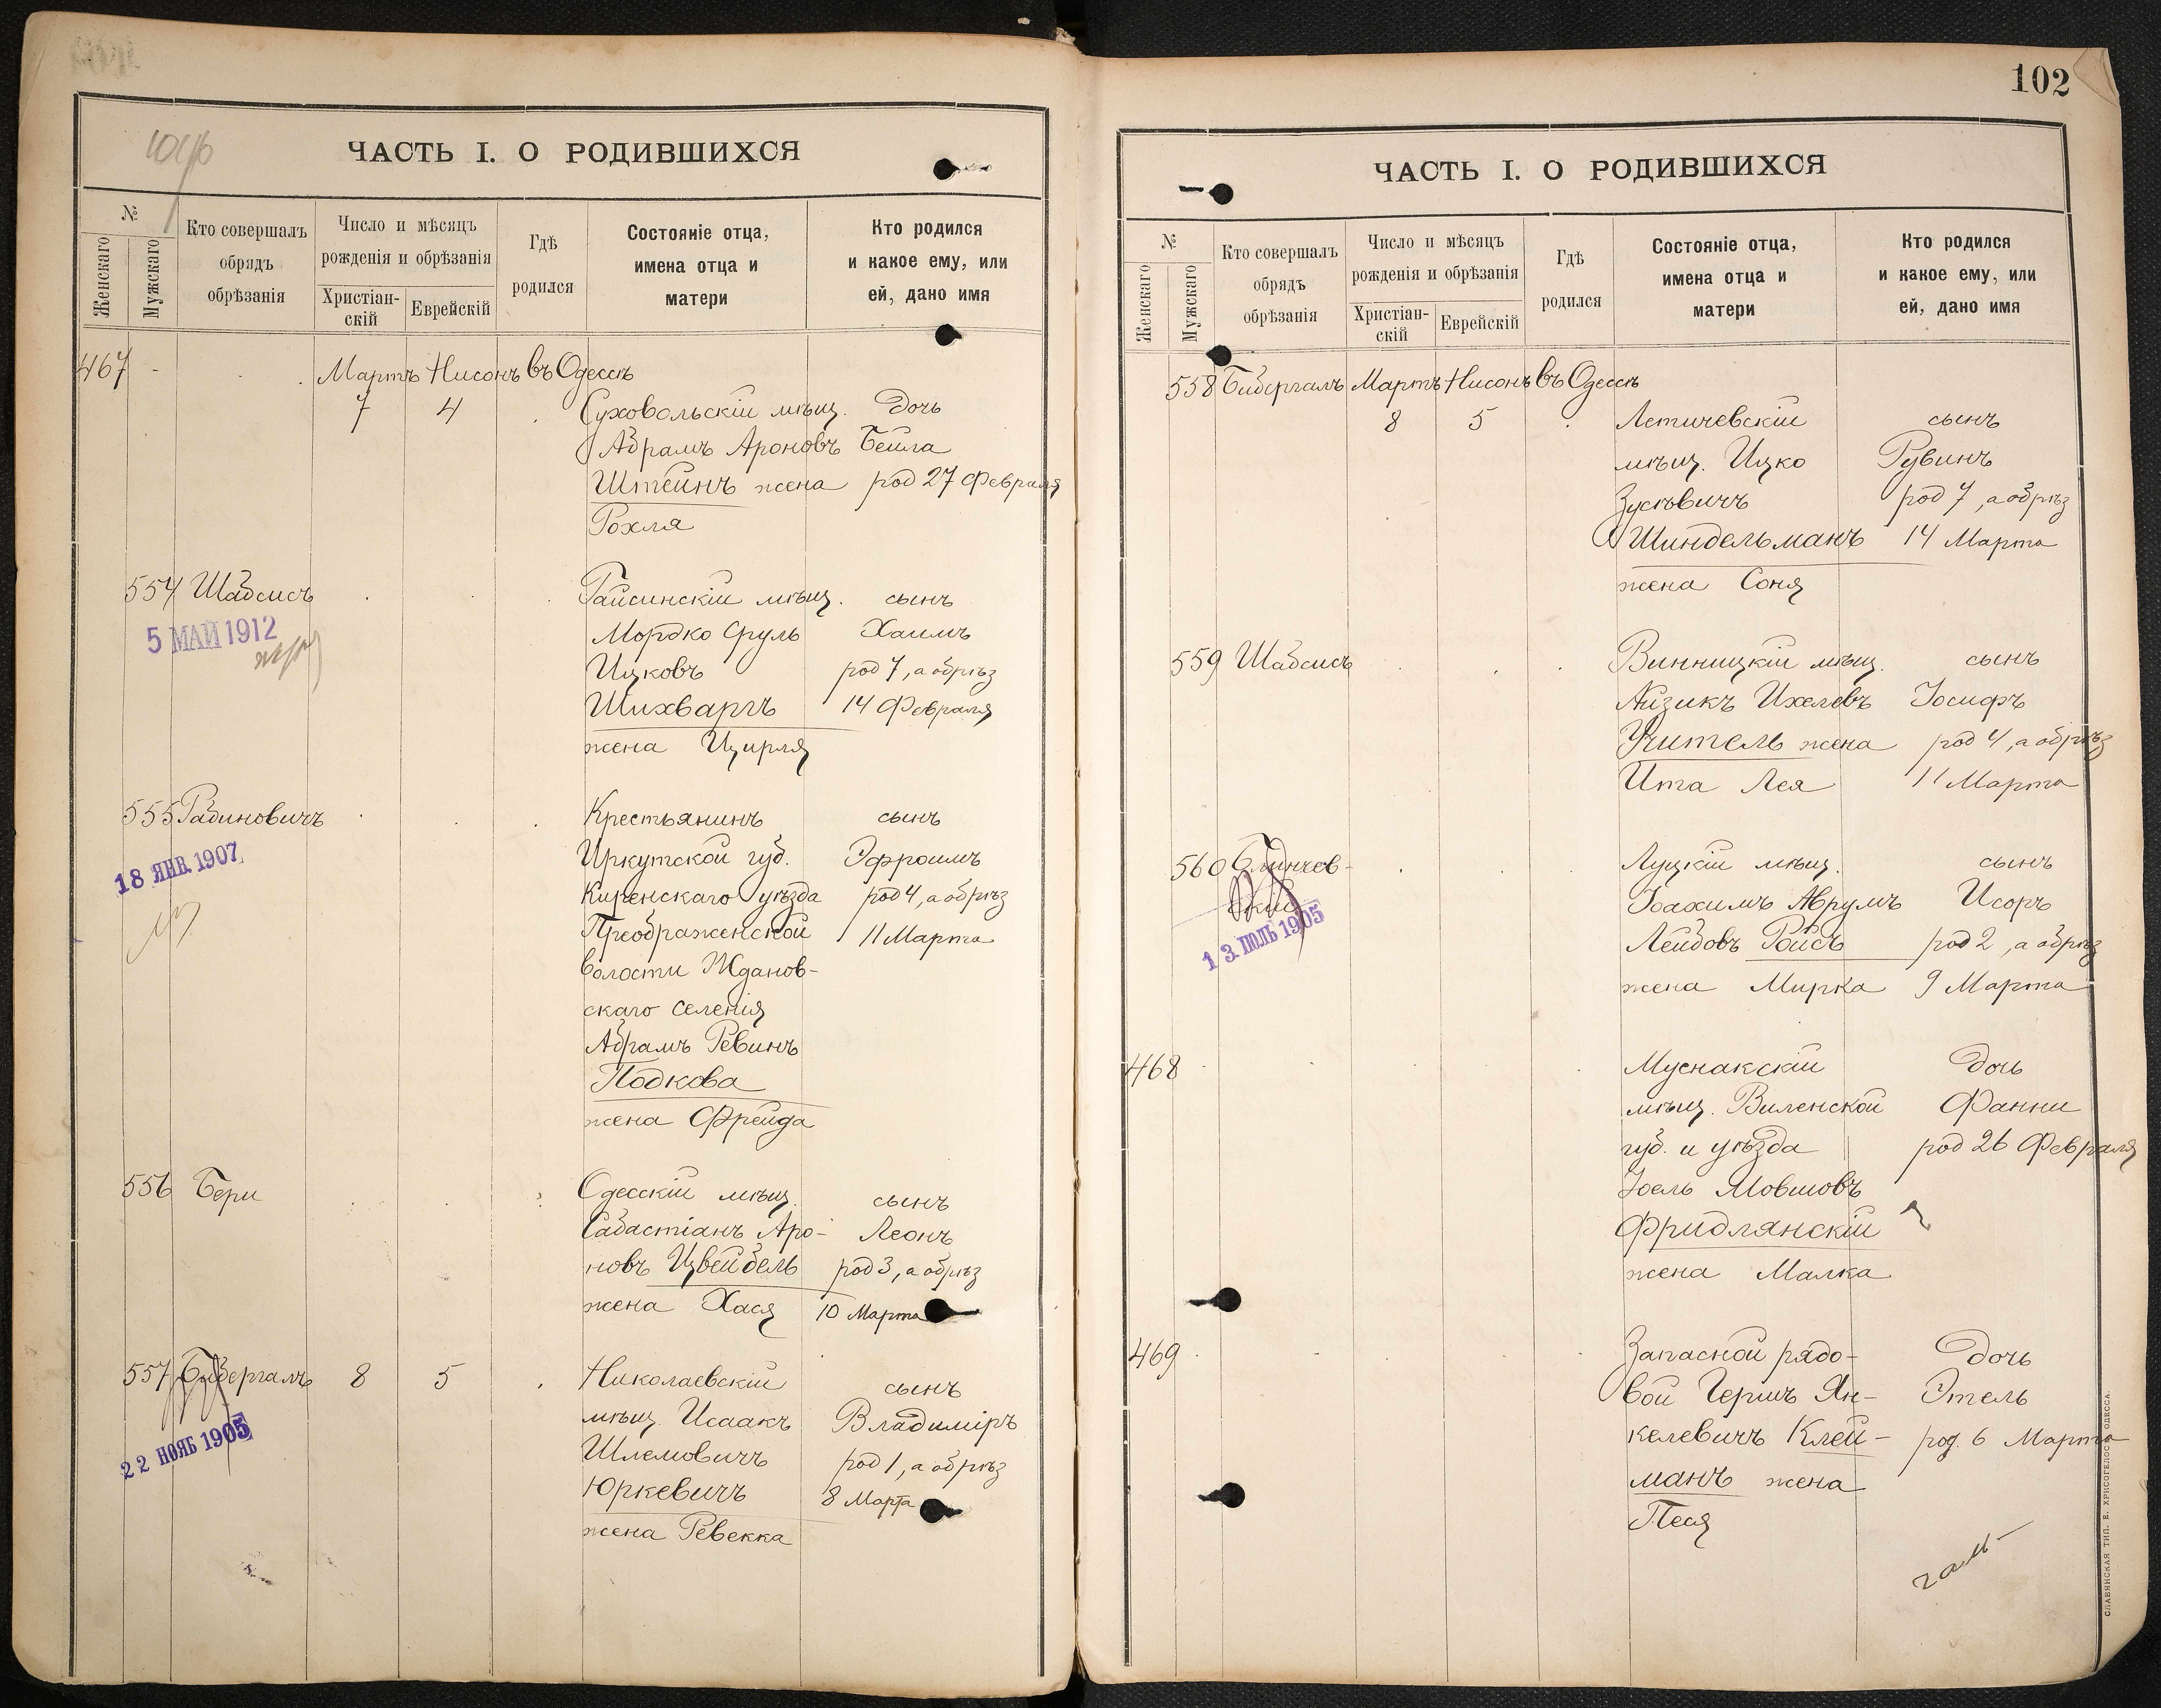 ЧАСТЬ I. О РОДИВШИХСЯ
№
Женскаго
Мужскаго
Кто совершалъ
обрядъ
обрѣзанія
Число и мѣсяцъ
рожденія и обрѣзанія
Христіан-
скій
Еврейскій
Гдѣ
родился
Состояніе отца,
имена отца и
матери
Кто родился
и какое ему, или
ей, дано имя
467 Мартъ Нисонъ въ Одессѣ
7 4 Суховольскій мѣщ. дочь
Абрамъ Ароновъ Бейла
Штейнъ жена род 27 Февраля
Рохля
554 Шабсисъ Гайсинскій мѣщ. сынъ
5 МАЙ 1912
Мордко Сруль Хаимъ
Ицковъ род 7, а обрѣз
Шихваргъ 14 Февраля
жена Цирля
555 Рабиновичъ Крестьянинъ сынъ
18 ЯНВ. 1907
Иркутской губ. Эфроимъ
Киренскаго уѣзда род 4, а обрѣз
Преображенской 11 Марта
волости Жданов-
скаго селенія
Абрамъ Ревинъ
Подкова
жена Фрейда
556 Бери Одесскій мѣщ. сынъ
Сабастіанъ Аро- Леонъ
новъ Цвейбель род 3, а обрѣз
жена Хася 10 Марта
557 Бибергалъ 8 5 Николаевскій сынъ
22 НОЯБ 1905
мѣщ. Исаакъ Владиміръ
Шлемовичъ род 1, а обрѣз
Юркевичъ 8 Марта
жена Ревекка
102
ЧАСТЬ I. О РОДИВШИХСЯ
№
Женскаго
Мужскаго
Кто совершалъ
обрядъ
обрѣзанія
Число и мѣсяцъ
рожденія и обрѣзанія
Христіан-
скій
Еврейскій
Гдѣ
родился
Состояніе отца,
имена отца и
матери
Кто родился
и какое ему, или
ей, дано имя
558 Бибергалъ Мартъ Нисонъ въ Одессѣ
8 5 Летичевскій сынъ
мѣщ. Ицко Рувинъ
Зусьвичъ род 7, а обрѣз
Шиндельманъ 14 Марта
жена Соня
559 Шабсисъ Винницкій мѣщ. сынъ
Айзикъ Ихелевъ Іосифъ
Учитель жена род 4, а обрѣз
Ита Лея 11 Марта
560 Блинчев- Луцкій мѣщ. сынъ
скій
13 ІЮЛЬ 1905
Іоахимъ Аврумъ Исоръ
Лейбовъ Ройсъ род 2, а обрѣз
жена Мирка 9 Марта
468 Муснакскій дочь
мѣщ. Виленской Фанни
губ. и уѣзда род 26 Февраля
Іоель Мовшовъ
Фридлянскій
жена Малка
469 Запасной рядо- дочь
вой Гершъ Ян- Этель
келевичъ Клей- род. 6 Марта
манъ жена
Песя
СЛАВЯНСКАЯ ТИП. Е. ХРИСОГЕЛОСЪ, ОДЕССА.